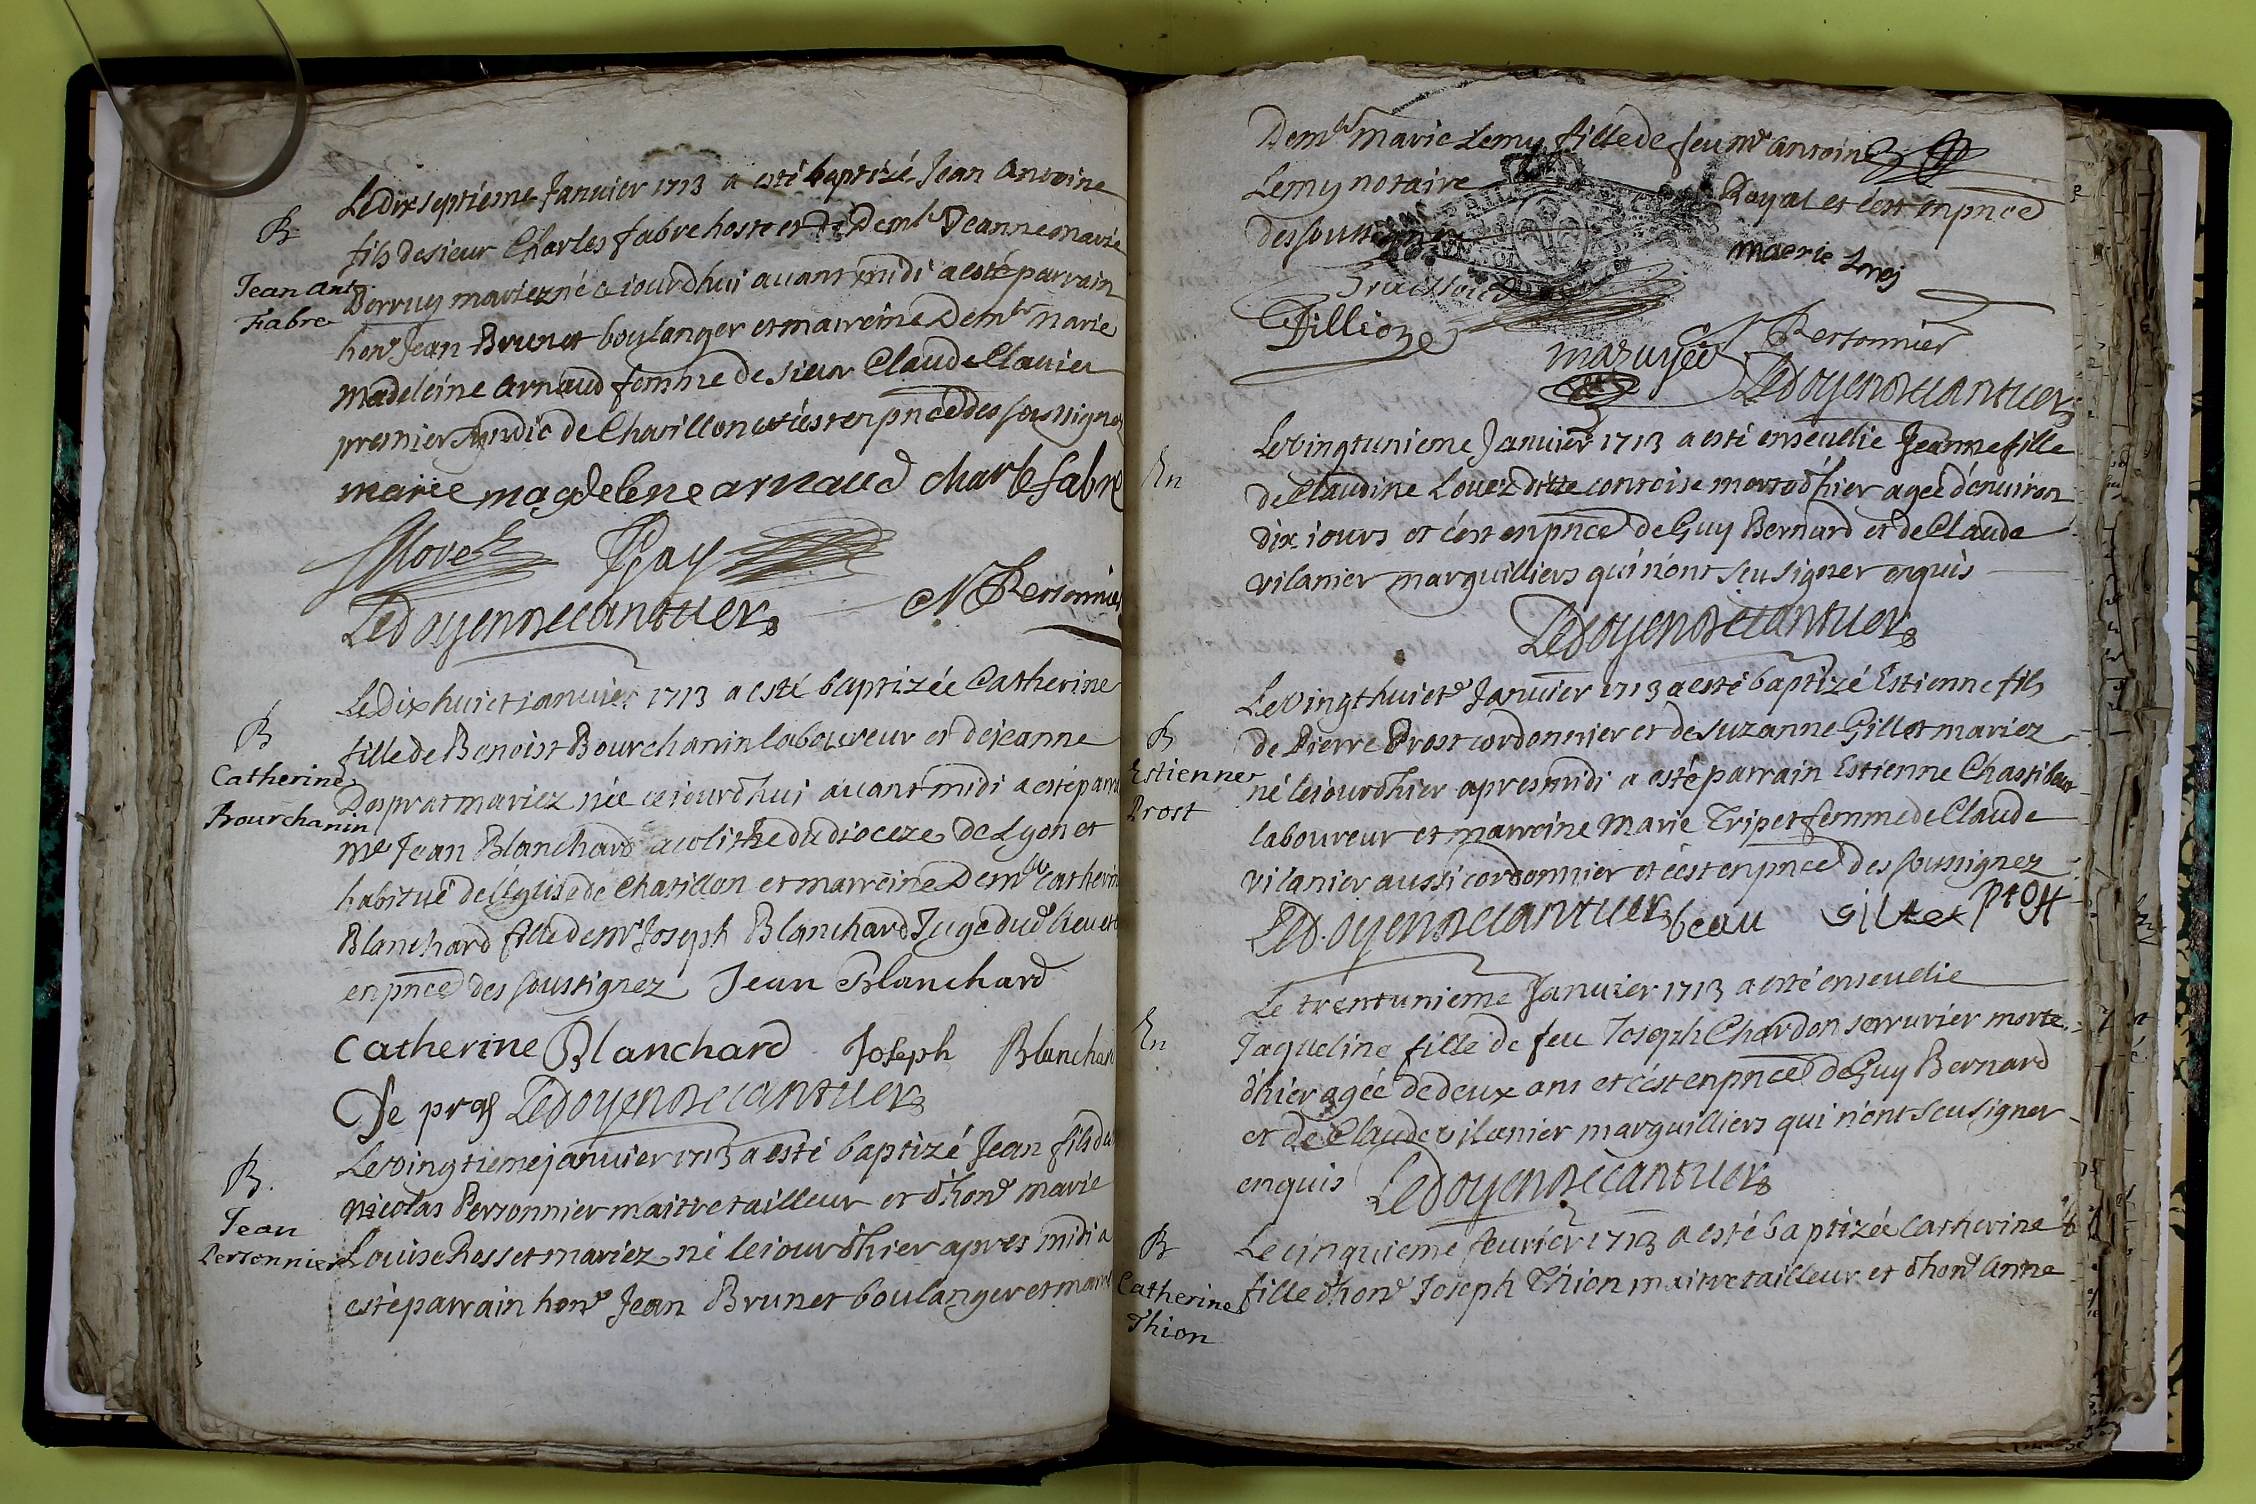 Le dix septiéme Janvier 1713 a esté baptizé Jean Antoine
B
fils de sieur Charles fabre hoste et de Demle Jeanne Marie
Jean Ant
Fabre
Berruy mariez né ce iourdhui auant midi a esté parrain
honr Jean Brunet boulanger et marreine Demle Marie
Madeleine Arnaud femme de sieur Claude Clauier
premier syndic de Chatillon et c'est en pnce des soussignez
marie magdelene arnaud charle fabre
Moret Gay
Ledoyen Decantuers N Personnier
Le Dixhuict ianuier 1713 a esté baptizée Catherine
B
fille de Benoist Bourchanin laboureur et de jeanne
Catherine
Bourchanin
Desprat mariez née ce iourdhui auant midi a esté parra
Me Jean Blanchard acolithe du dioceze de Lyon et
habitué de l'Eglise de Chatillon et marreine Demlle Catherin
Blanchard fille de mr Joseph Blanchard Juge dud lieu et c
en pnce des soussignez Jean Blanchard
Catherine Blanchard Joseph Blanchar
De pras Ledoyen Decantuers
Le vingtieme janvier 1713 a esté baptizé Jean fils du
B.
Jean
Personnier
nicolas Personnier maitre tailleur et d'hone marie
Louise Rosset mariez né le iour d'hier apres midi a
esté parrain honr Jean Brunet boulanger et marre
Demle Marie Lemy fille de feu mr Antoine
Lemy notaire Royal et c'est en pnce
des soussignez maerie Lmei
Fillion mazuyer N Personnier
Ledoyen Decantuers
Le vingtunieme Janvier 1713 a esté enseuelie Jeanne fille
En
de Claudine Louez ditte contoise morte d'hier agée d'enuiron
dix iours et c'est en pnce de Guy Bernard et de Claude
vilanier marguilliers qui n'ont sceu signer enquis
Ledoyen Decantuers
Le vingthuicte Janvier 1713 a esté baptizé Estienne fils
B
Estienne
Prost
de Pierre Prost cordonnier et de suzanne Gillet mariez
né le iour d'hier apres midi a esté parrain Estienne Chastil
laboureur et marreine Marie Tripet femme de Claude
vilanier aussi cordonnier et c'est en pnce des soussignez
Ledoyen Decantuers beau gillet prost
Le trentunieme Janvier 1713 a esté enseuelie
En
Jaqueline fille de feu Joseph Chardon serrurier morte
d'hier agée de deux ans et c'est en pnce de Guy Bernard
et de Claude vilanier marguilliers qui n'ont sceu signer
enquis Ledoyen Decantuers
Le cinquieme feurier 1713 a esté baptizée Catherine
B
Catherine
Thion
fille d'honr Joseph Thion maitre tailleur et d'hone Anne